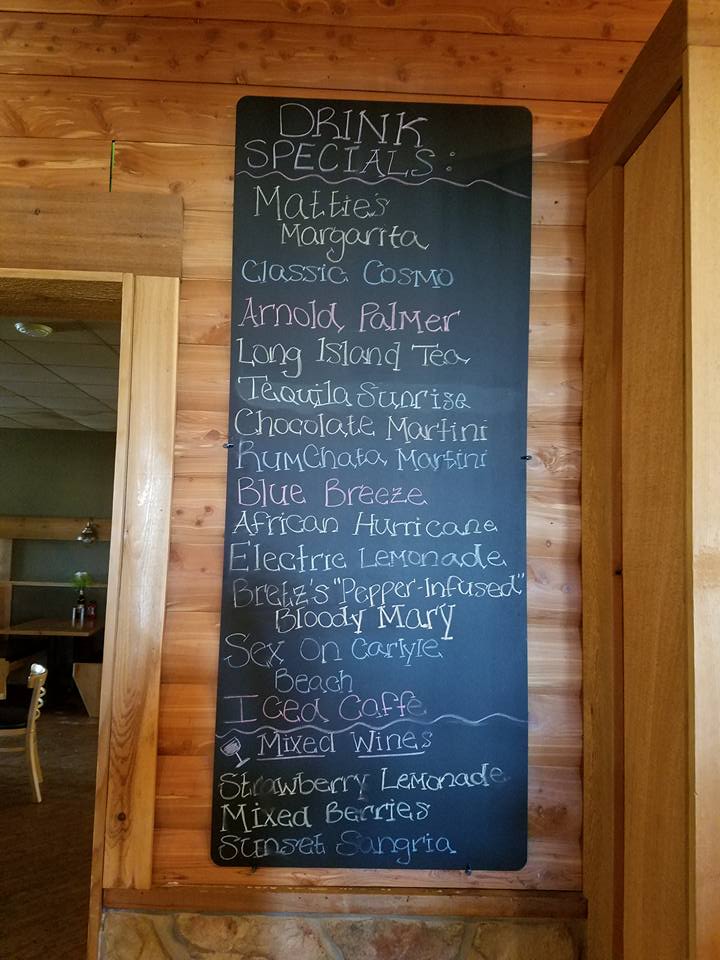 DRINK
SPECIALS:
Matties
Margarita
Classic Cosmo
Arnold Palmer
Long Island Tea
Tequila Sunrise
Chocolate Martini
RumChata Martini
Blue Breeze
African Hurricane
Electric Lemonade
Bretz's "Pepper-Infused"
Bloody Mary
Sex On Carlyle
Beach
Iced Caffe
Mixed Wines
Strawberry Lemonade
Mixed Berries
Sunset Sangria